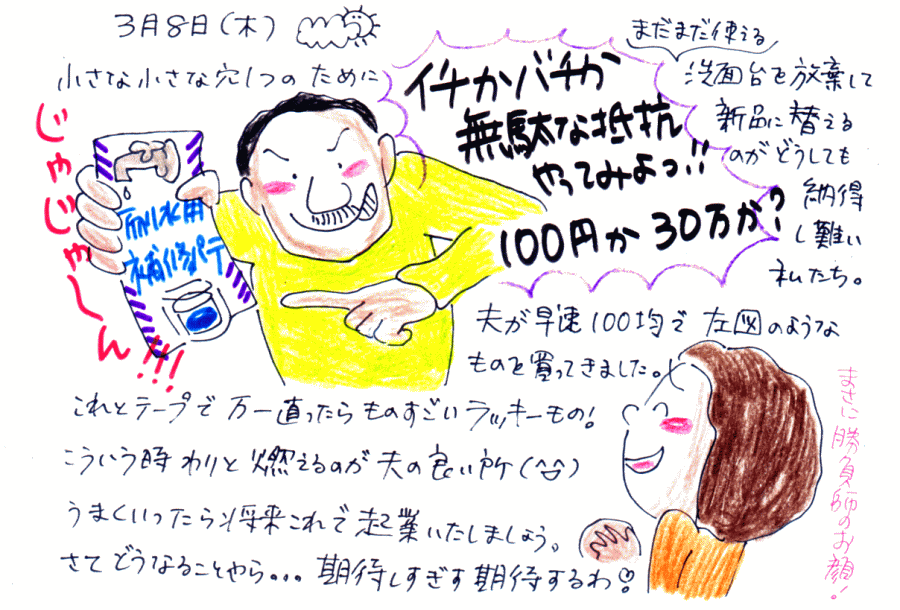 3月8日(木)
小さな小さな穴1つのために
まだまだ使える
洗面台を放棄して
新品に替える
のがどうしても
納得
し難い
私たち。
イチかバチか
無駄な抵抗
やってみよっ!!
100円か30万か?
じゃじゃーん!!!
耐水用
補修パテ
夫が早速100均で左図のような
ものを買ってきました。
これとテープで万一直ったらものすごいラッキーもの!
こういう時わりと燃えるのが夫の良い所(^^)
うまくいったら将来これで起業いたしましょう。
さてどうなることやら... 期待しすぎず期待するわ♡
まさに勝負師のお顔!